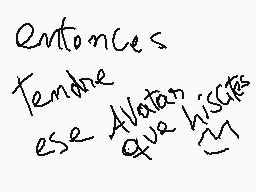 entonces
tendre
ese Avatar
que hiscites